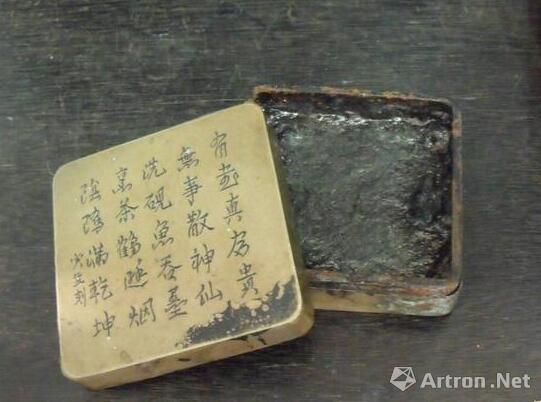 有書真富貴
無事散神仙
洗硯魚吞墨
烹茶鶴避烟
陰隲滿乾坤
刻
Artron.Net